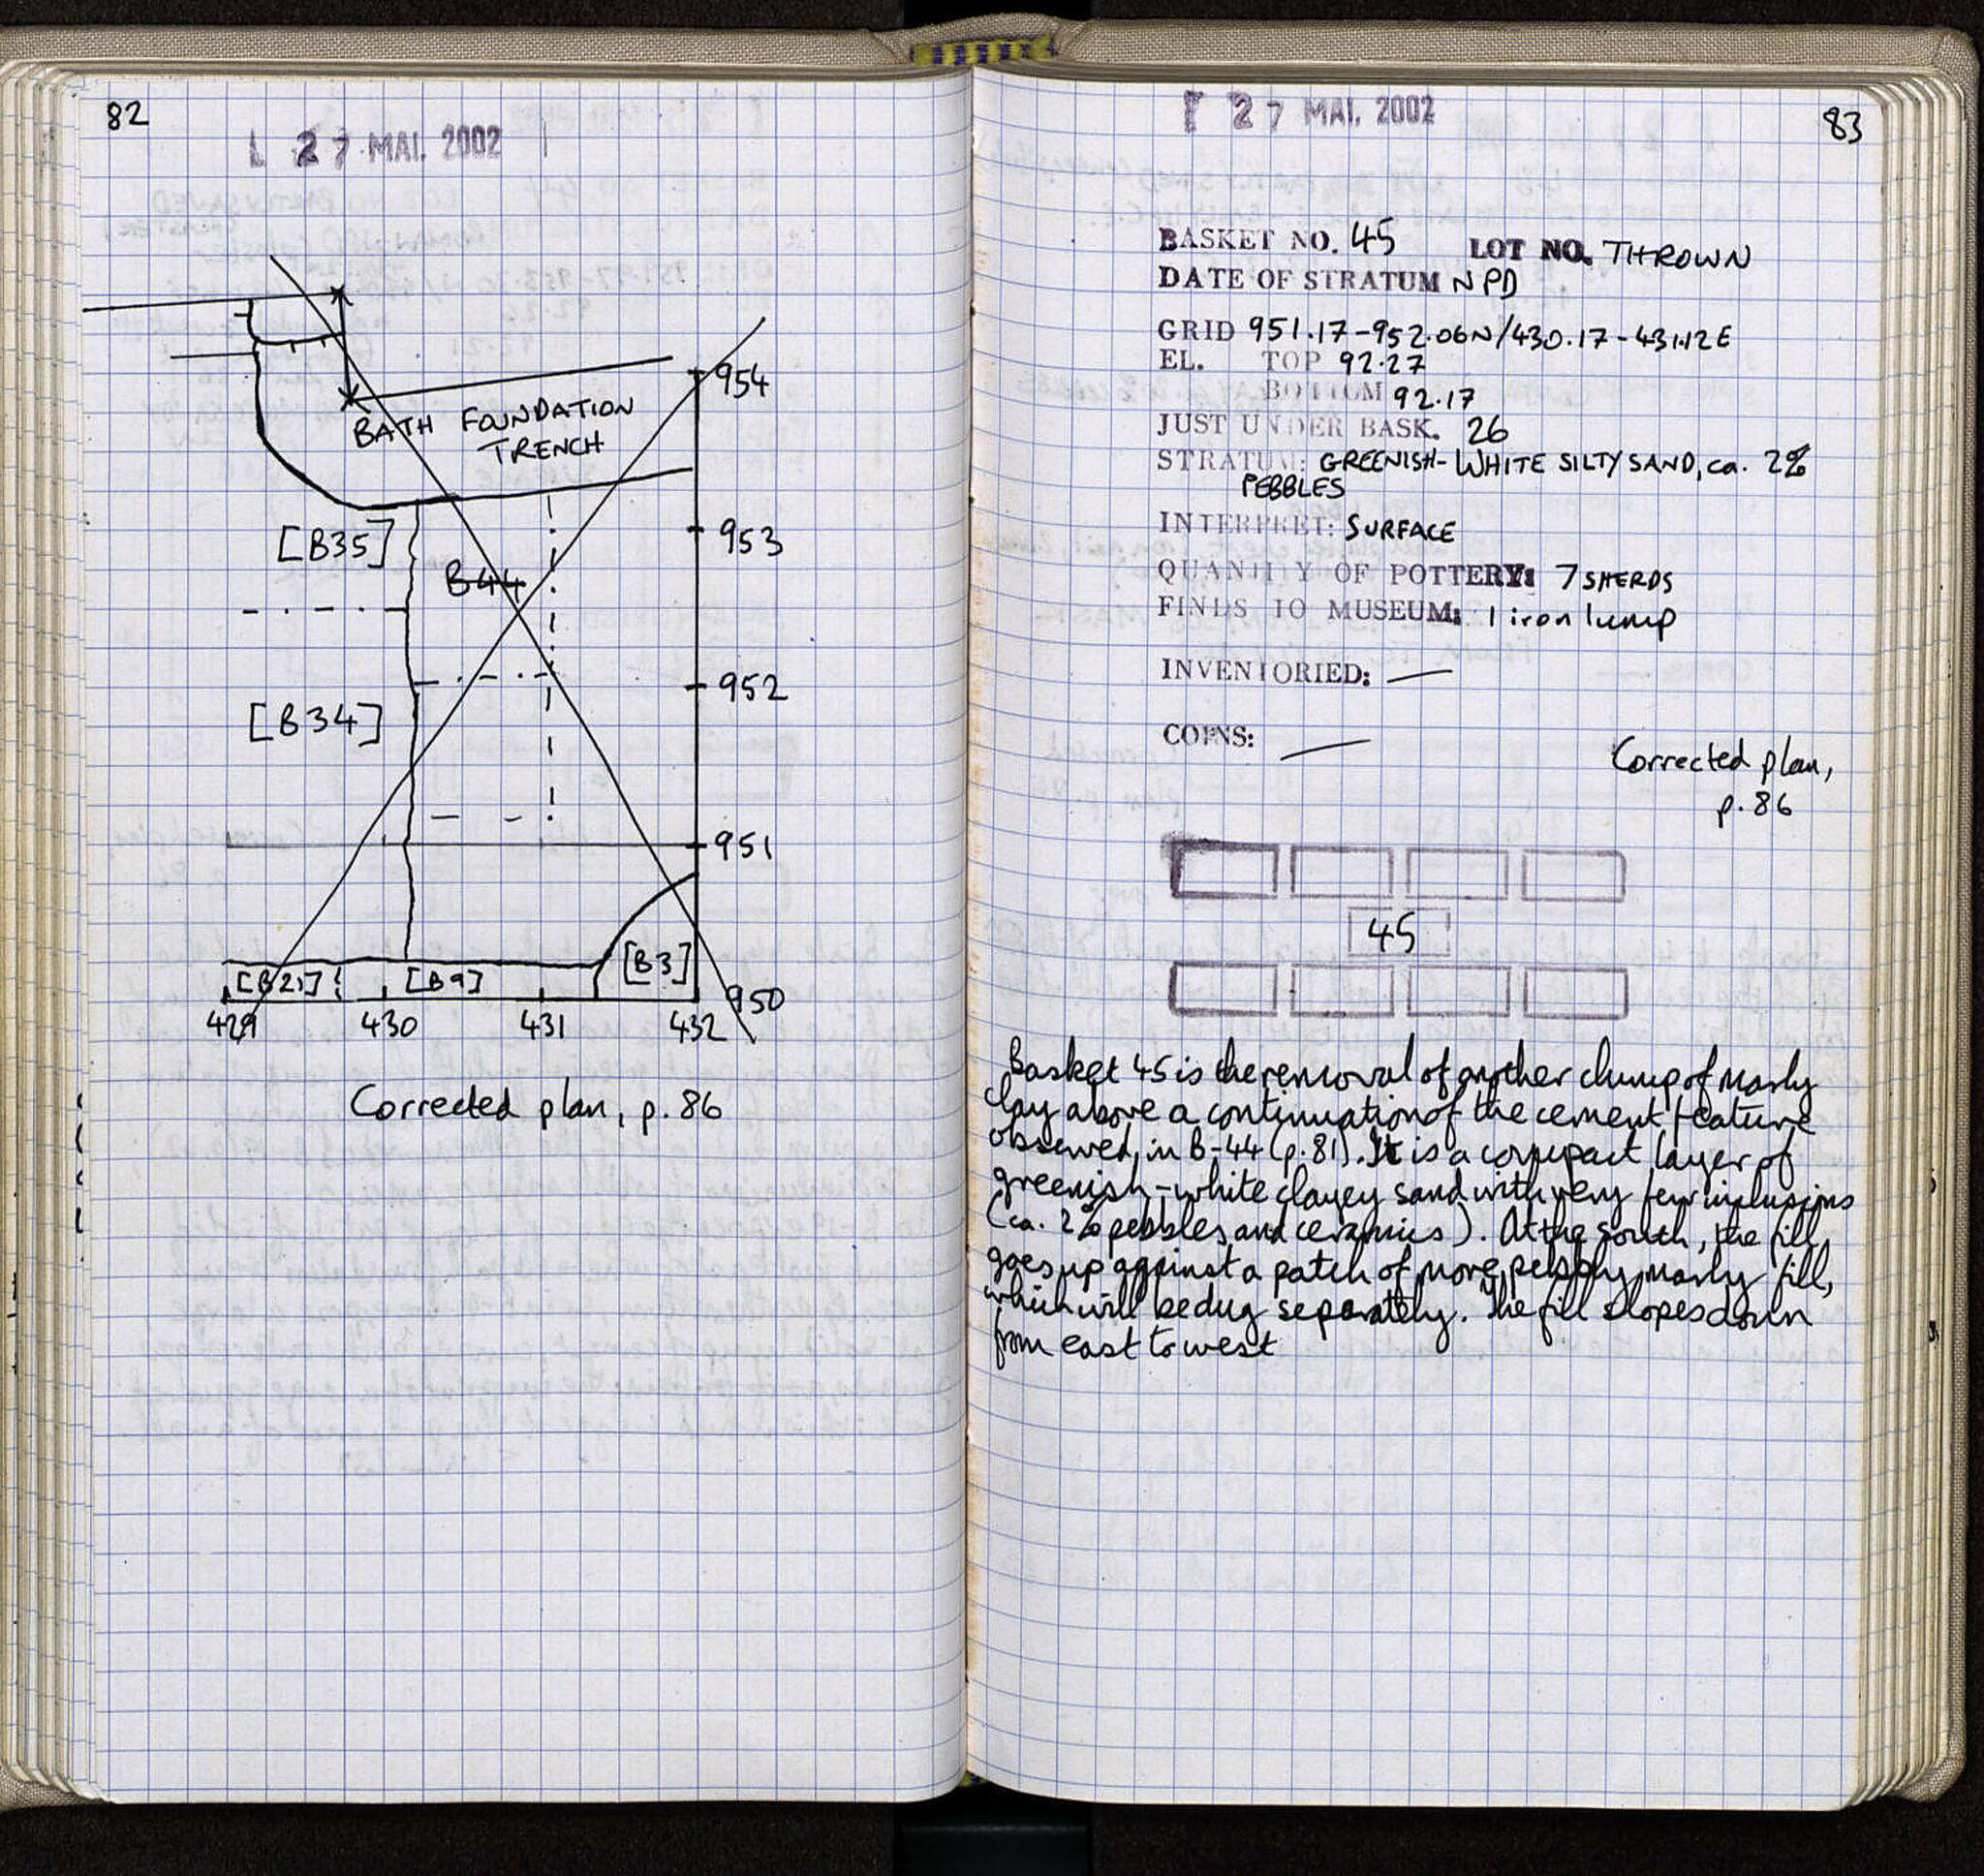 82
27 MAI. 2002
954
BATH FOUNDATION
TRENCH
[B35]
953
B44
952
[B34]
951
[B21]
[B9]
[B3]
950
429
430
431
432
Corrected plan, p. 86
27 MAI. 2002
83
BASKET NO. 45 LOT NO. THROWN
DATE OF STRATUM NPD
GRID 951.17-952.06N/430.17-431.12E
EL. TOP 92.27
BOTTOM 92.17
JUST UNDER BASK. 26
STRATUM: GREENISH-WHITE SILTY SAND, ca. 2%
PEBBLES
INTERPRET: SURFACE
QUANTITY OF POTTERY: 7 SHERDS
FINDS TO MUSEUM: 1 iron lump
INVENTORIED: —
COINS: —
Corrected plan,
p. 86
45
Basket 45 is the removal of another clump of marly
clay above a continuation of the cement feature
observed in B-44 (p. 81). It is a compact layer of
greenish-white clayey sand with very few inclusions
(ca. 2% pebbles and ceramics). At the south, the fill
goes up against a patch of more pebbly marly fill,
which will be dug separately. The fill slopes down
from east to west